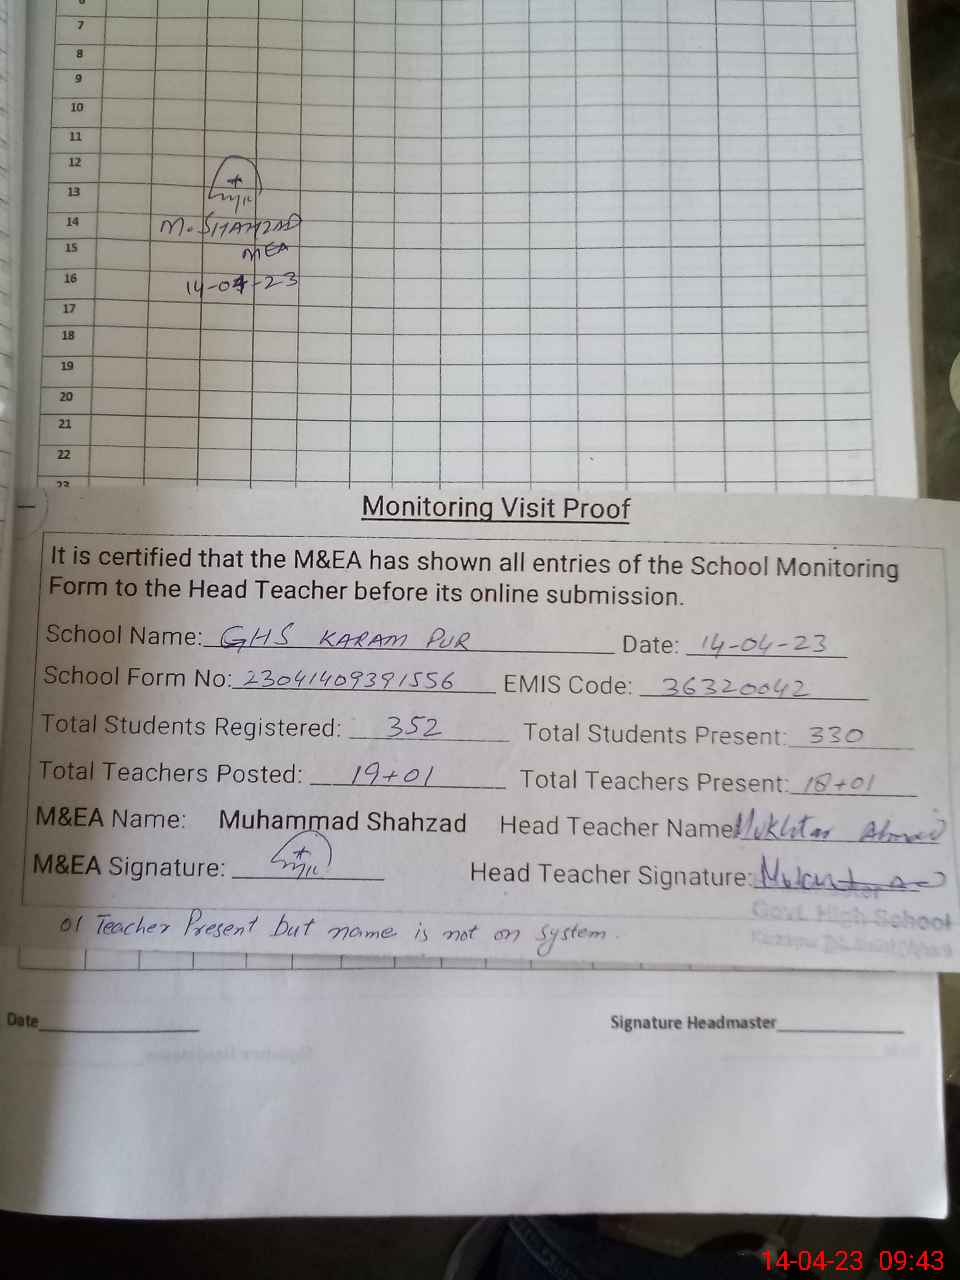 7
8
9
10
11
12
13
14
M. SHAHZAD
15
MEA
16
14-04-23
17
18
19
20
21
22
23
Monitoring Visit Proof
It is certified that the M&EA has shown all entries of the School Monitoring
Form to the Head Teacher before its online submission.
School Name: GHS KARAM PUR Date: 14-04-23
School Form No: 23041409391556 EMIS Code: 36320042
Total Students Registered: 352 Total Students Present: 330
Total Teachers Posted: 19+01 Total Teachers Present: 18+01
M&EA Name: Muhammad Shahzad Head Teacher Name: Mukhtar Ahmad
M&EA Signature: Head Teacher Signature:
Govt. High School
01 Teacher Present but name is not on system.
Date Signature Headmaster
14-04-23 09:43